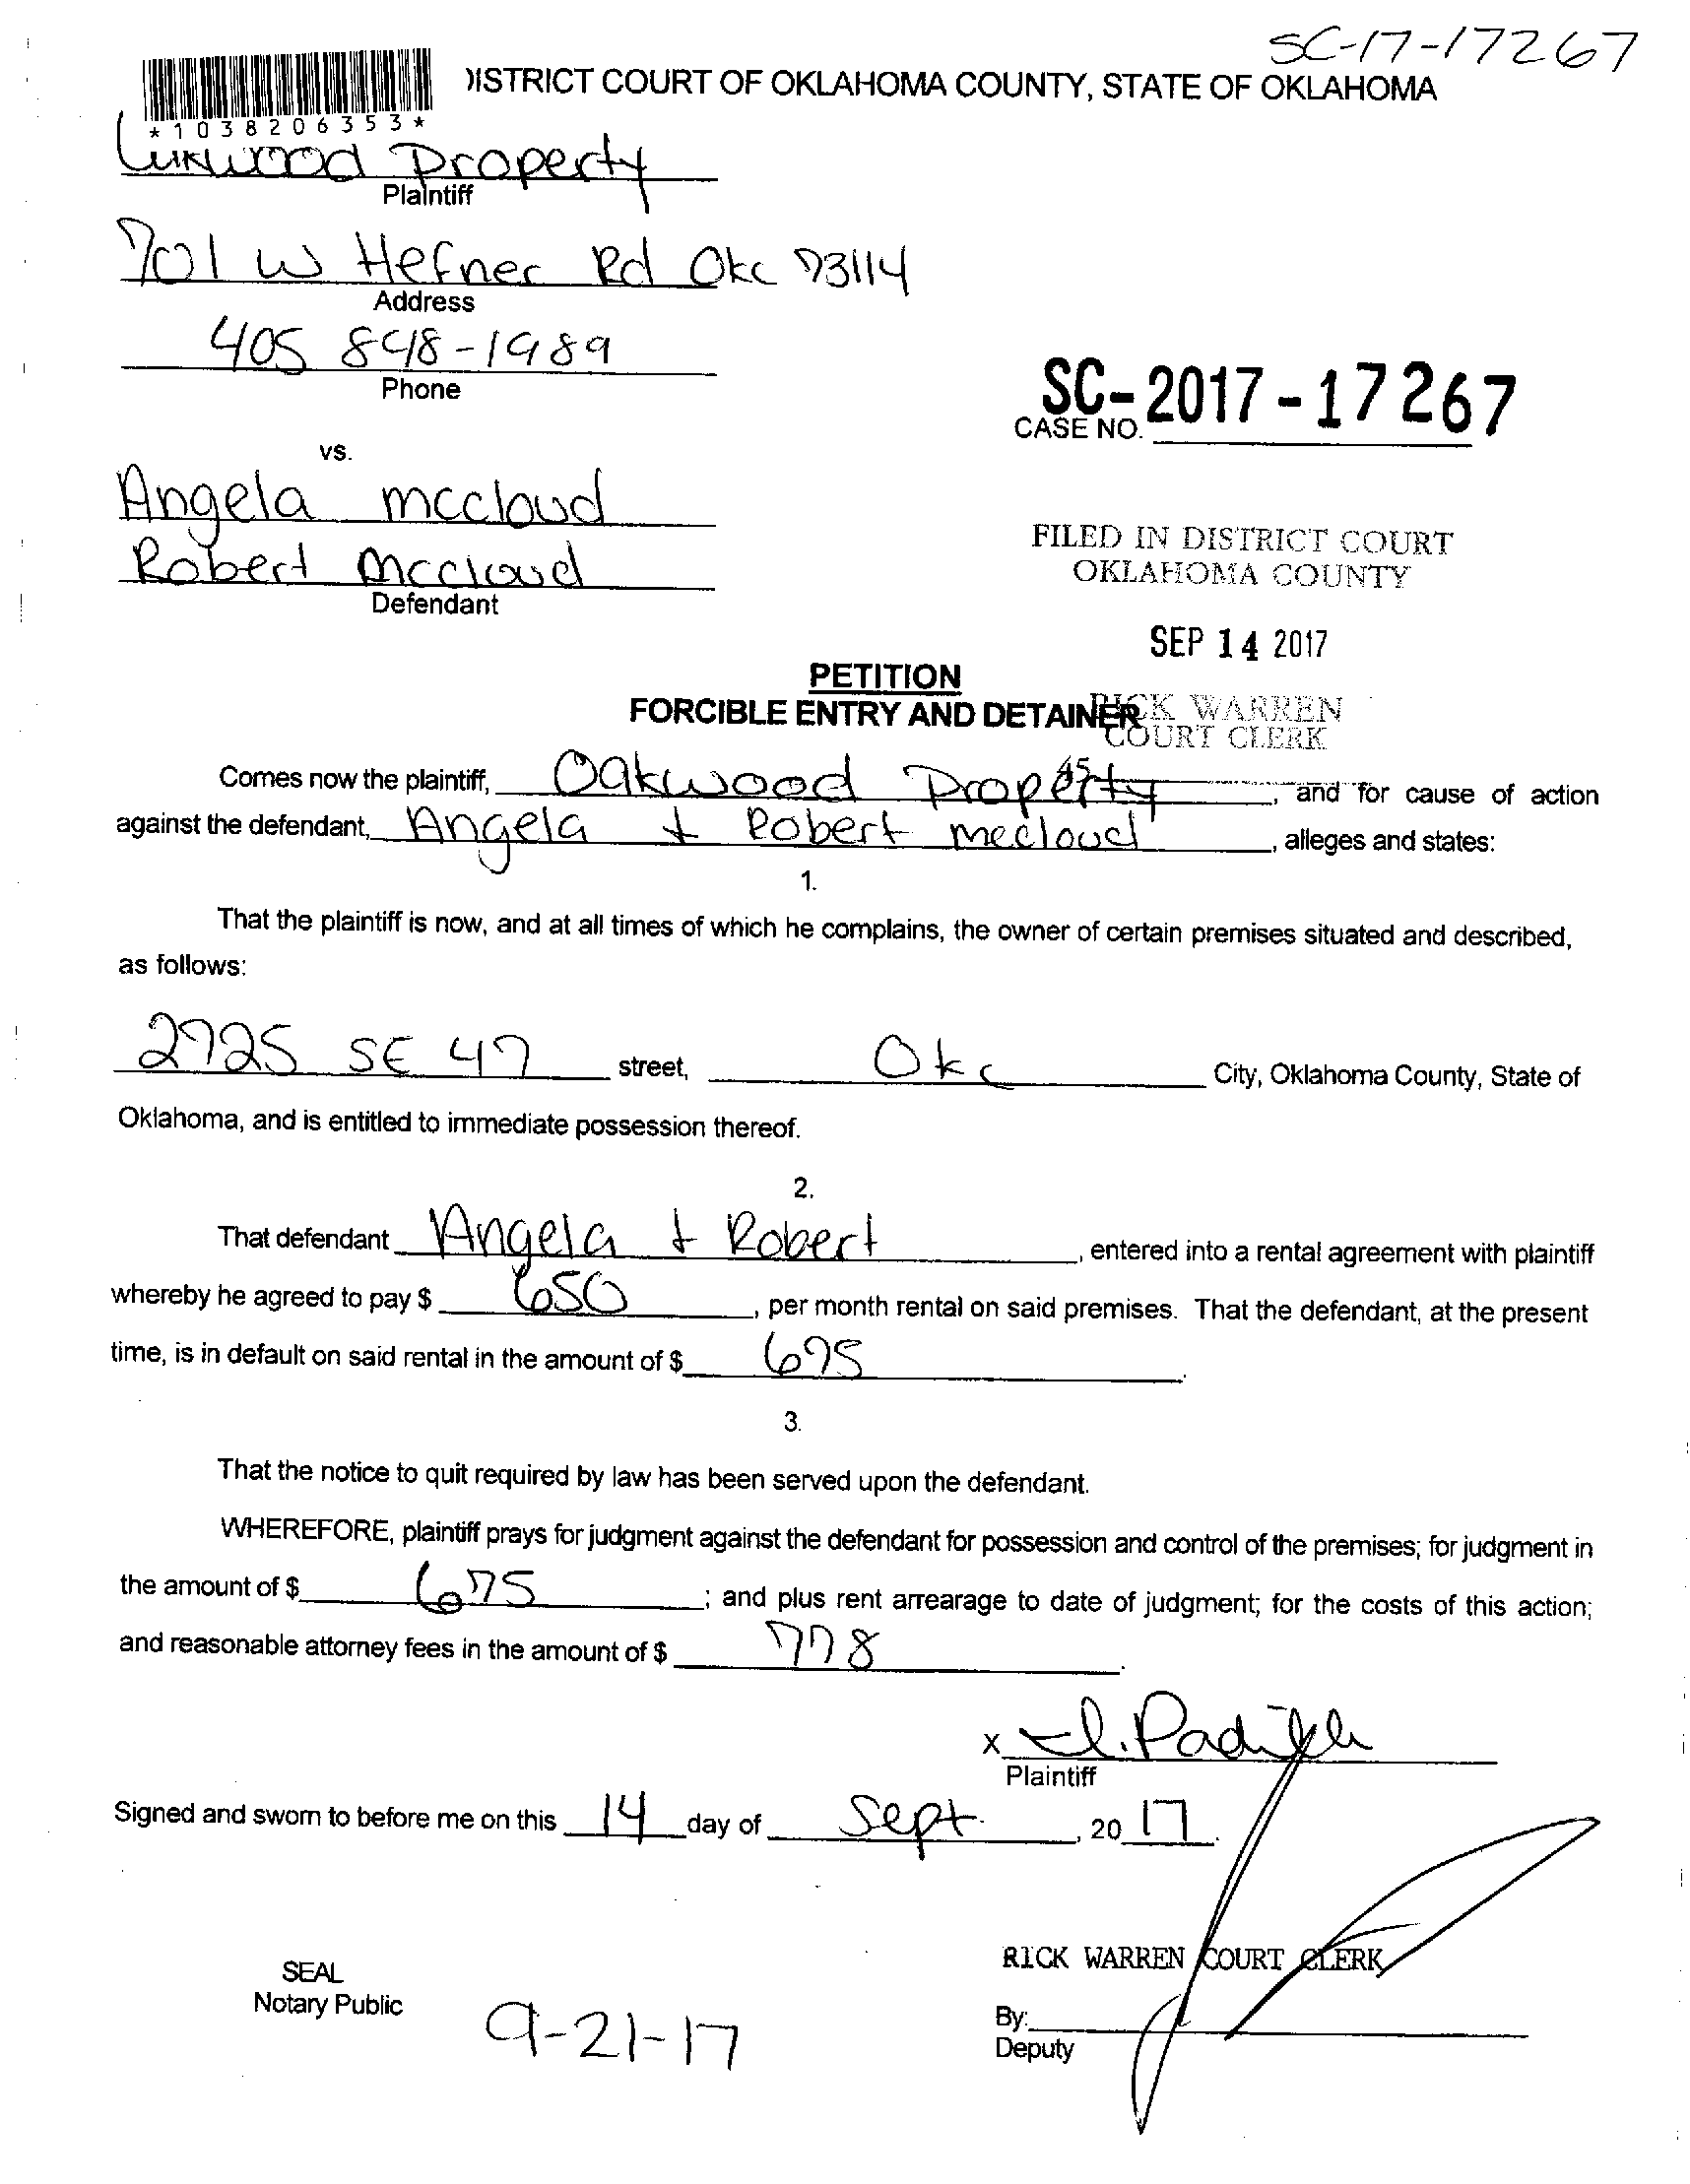 SC-17-17267
DISTRICT COURT OF OKLAHOMA COUNTY, STATE OF OKLAHOMA
*1038206353*
Property
Plaintiff
701 W Hefner Rd Okc 73114
Address
405 848-1989
Phone
SC-2017-17267
CASE NO.
vs.
Angela mccloud
Robert mccloud
Defendant
FILED IN DISTRICT COURT
OKLAHOMA COUNTY
SEP 14 2017
PETITION
FORCIBLE ENTRY AND DETAINER
RICK WARREN
COURT CLERK
45
Comes now the plaintiff, Oakwood Property, and for cause of action
against the defendant, Angela + Robert mccloud, alleges and states:
1.
That the plaintiff is now, and at all times of which he complains, the owner of certain premises situated and described,
as follows:
2725 SE 47 street, Okc City, Oklahoma County, State of
Oklahoma, and is entitled to immediate possession thereof.
2.
That defendant Angela + Robert, entered into a rental agreement with plaintiff
whereby he agreed to pay $ 650, per month rental on said premises. That the defendant, at the present
time, is in default on said rental in the amount of $ 675.
3.
That the notice to quit required by law has been served upon the defendant.
WHEREFORE, plaintiff prays for judgment against the defendant for possession and control of the premises; for judgment in
the amount of $ 675; and plus rent arrearage to date of judgment; for the costs of this action;
and reasonable attorney fees in the amount of $ 778.
x Padilla
Plaintiff
Signed and sworn to before me on this 14 day of Sept., 2017.
RICK WARREN COURT CLERK
SEAL
Notary Public
9-21-17
By:
Deputy